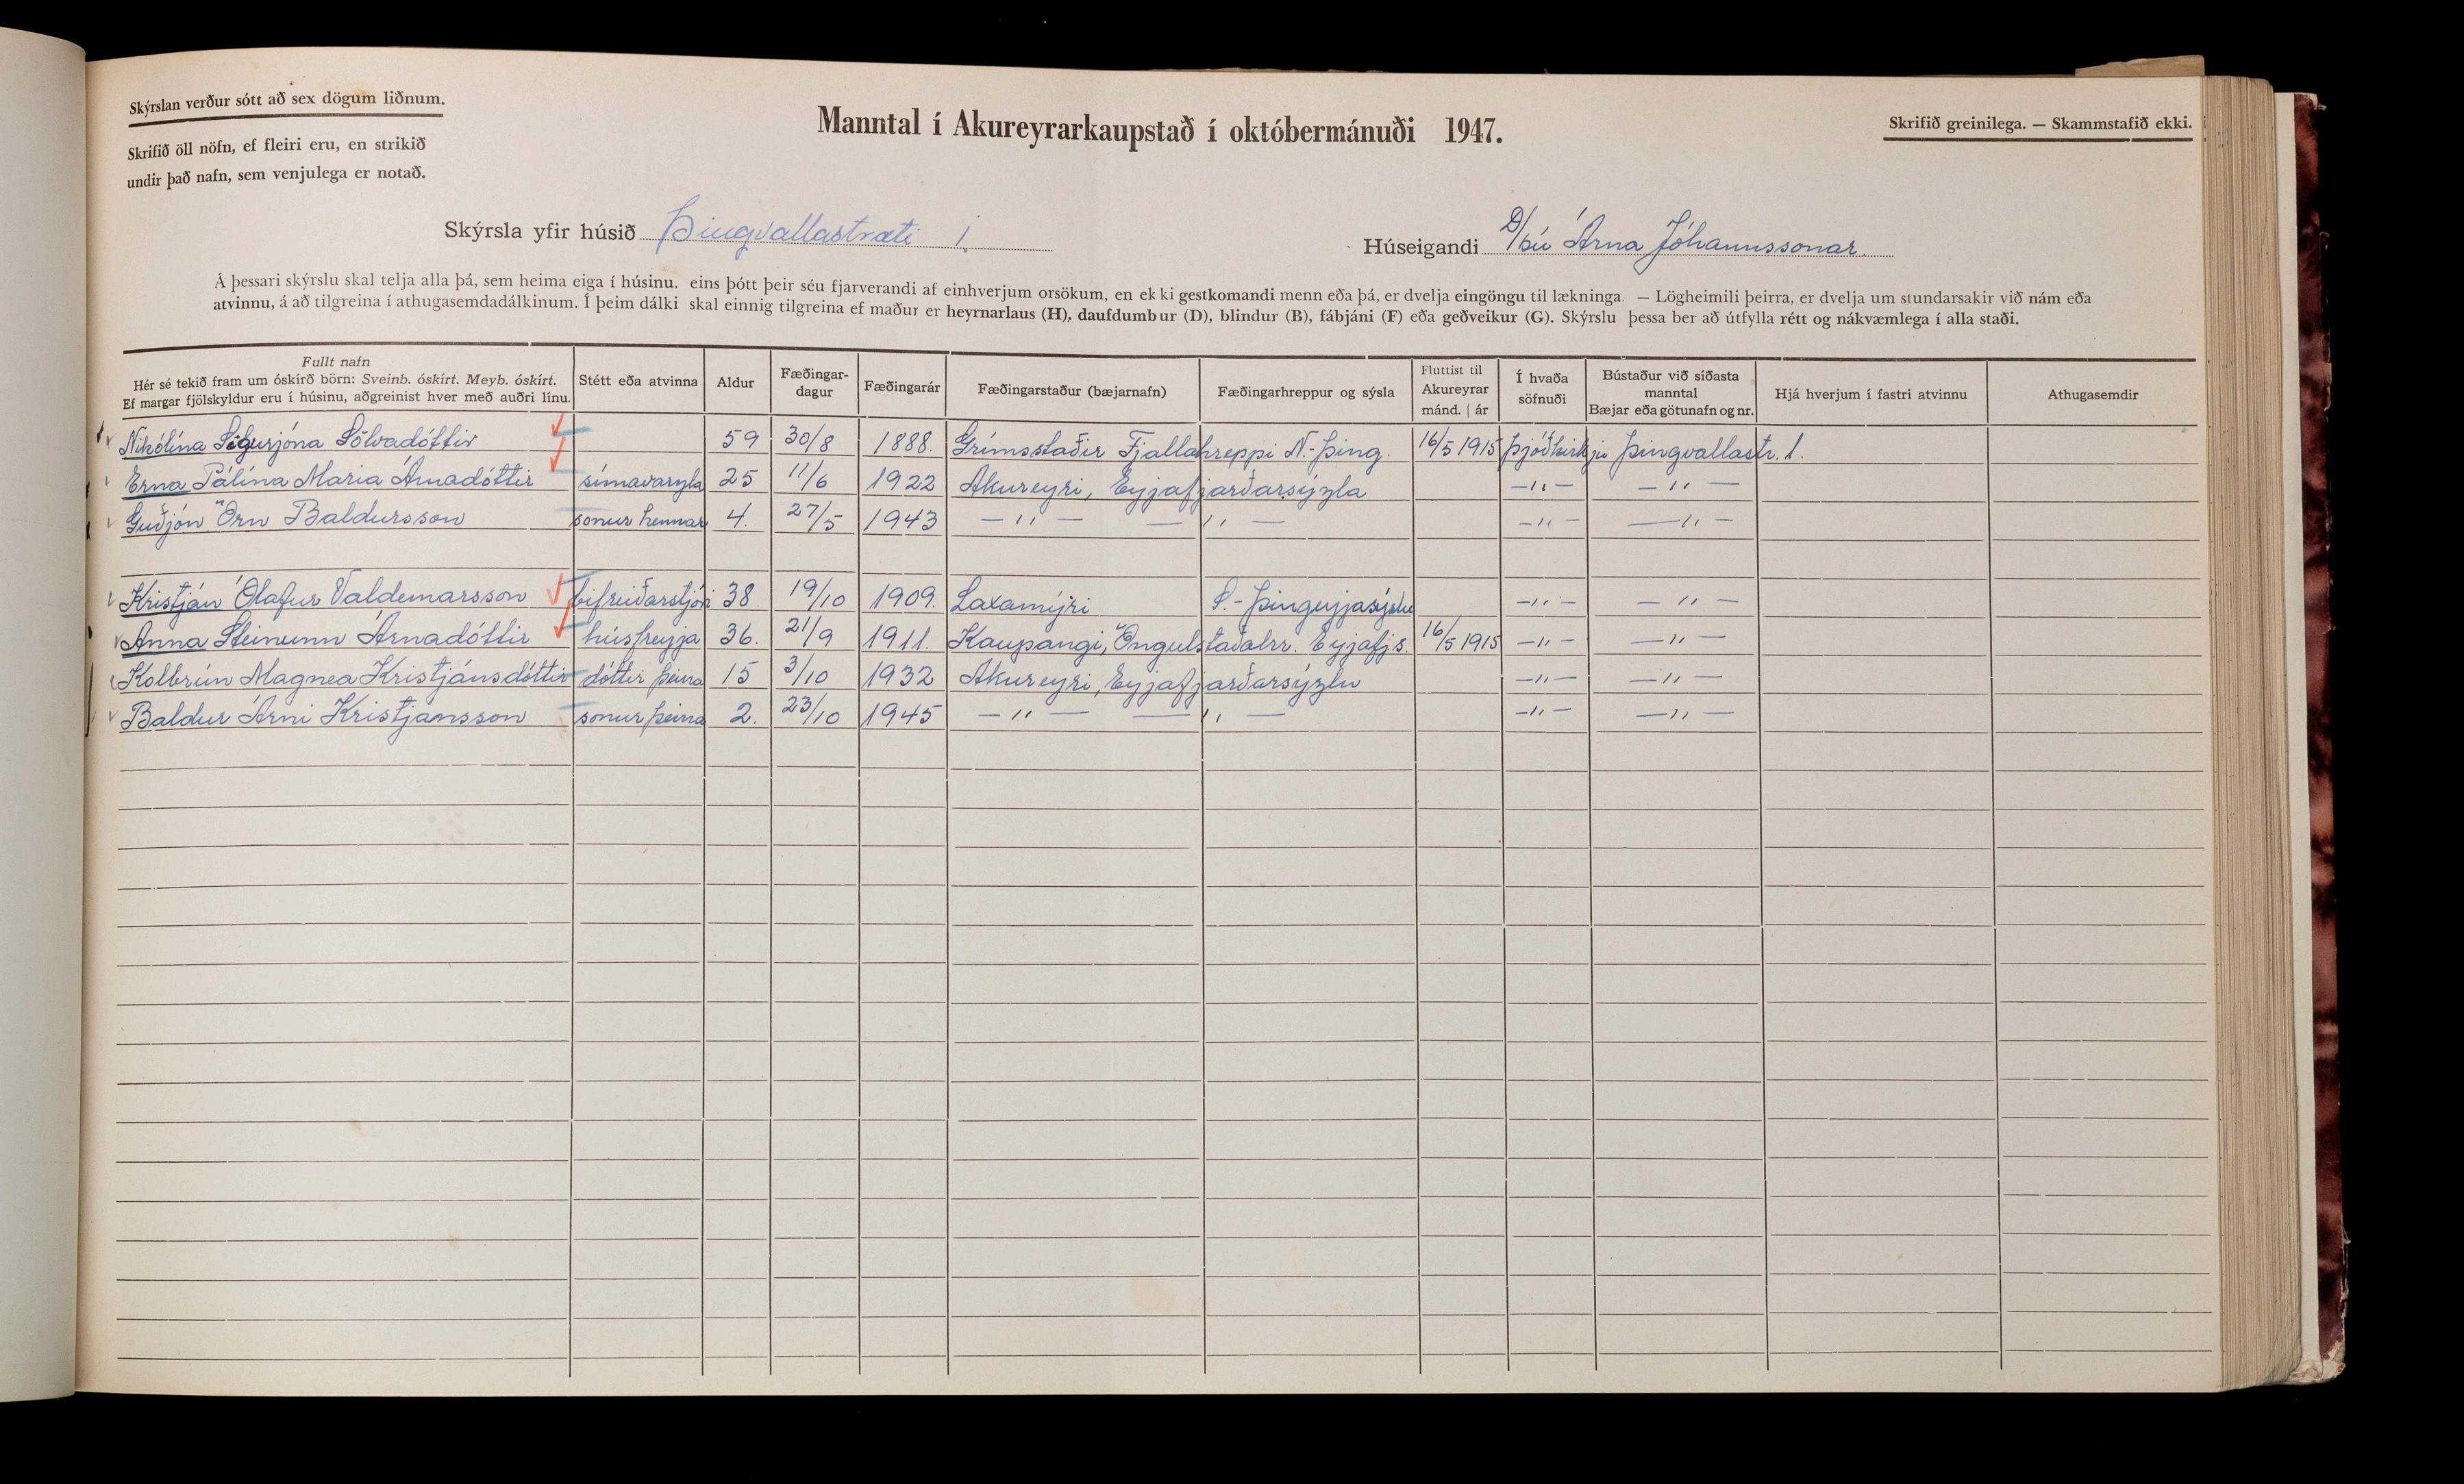 Skýrslan verður sótt að sex dögum liðnum.
Skrifið öll nöfn, ef fleiri eru, en strikið
undir það nafn, sem venjulega er notað.
Manntal í Akureyrarkaupstað í októbermánuði 1947.
Skrifið greinilega. — Skammstafið ekki.
Skýrsla yfir húsið Þingvallastræti 1.
Húseigandi D/bú Árna Jóhannssonar.
Á þessari skýrslu skal telja alla þá, sem heima eiga í húsinu, eins þótt þeir séu fjarverandi af einhverjum orsökum, en ekki gestkomandi menn eða þá, er dvelja eingöngu til lækninga. — Lögheimili þeirra, er dvelja um stundarsakir við nám eða
atvinnu, á að tilgreina í athugasemdadálkinum. Í þeim dálki skal einnig tilgreina ef maður er heyrnarlaus (H), daufdumbur (D), blindur (B), fábjáni (F) eða geðveikur (G). Skýrslu þessa ber að útfylla rétt og nákvæmlega í alla staði.
Fullt nafn
Hér sé tekið fram um óskírð börn: Sveinb. óskírt. Meyb. óskírt.
Ef margar fjölskyldur eru í húsinu, aðgreinist hver með auðri línu.
Stétt eða atvinna
Aldur
Fæðingar-
dagur
Fæðingarár
Fæðingarstaður (bæjarnafn)
Fæðingarhreppur og sýsla
Fluttist til
Akureyrar
mánd. | ár
Í hvaða
söfnuði
Bústaður við síðasta
manntal
Bæjar eða götunafn og nr.
Hjá hverjum í fastri atvinnu
Athugasemdir
Nikólína Sigurjóna Sölvadóttir 59 30/8 1888. Grímsstaðir Fjallahreppi N.-Þing. 16/5 1915 Þjóðkirkju Þingvallastr. 1.
Erna Pálína Maria Árnadóttir símavarzla 25 11/6 1922 Akureyri, Eyjafjarðarsýzla —"— —"—
Guðjón Örn Baldursson sonur hennar 4. 27/5 1943 —"— —"— —"— —"—
Kristján Ólafur Valdemarsson bifreiðarstjóri 38 19/10 1909. Laxamýri S.-Þingeyjasýslu —"— —"—
Anna Steinunn Árnadóttir húsfreyja 36. 21/9 1911. Kaupangi, Öngulstaðahr. Eyjafj.s. 16/5 1915 —"— —"—
Kolbrún Magnea Kristjánsdóttir dóttir þeirra 15 3/10 1932 Akureyri, Eyjafjarðarsýzlu —"— —"—
Baldur Árni Kristjansson sonur þeirra 2. 23/10 1945 —"— —"— —"— —"—